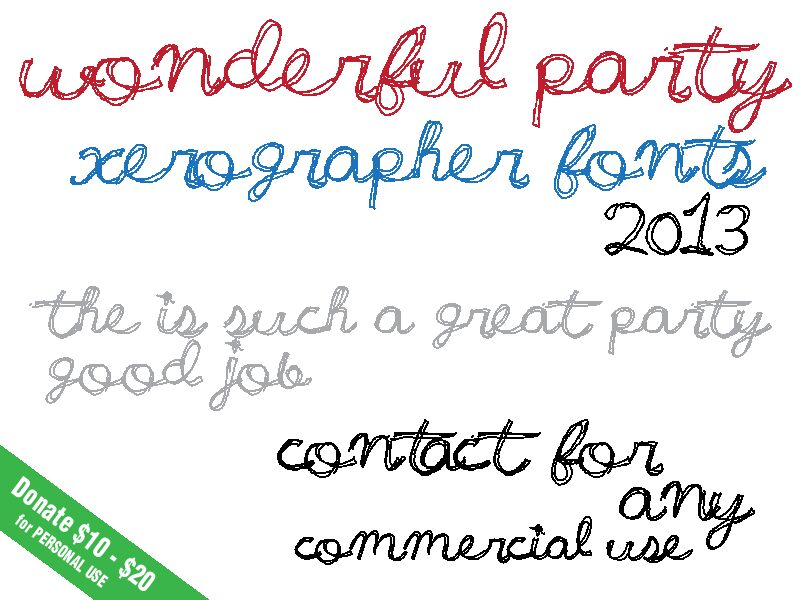 wonderful party
xerographer fonts
2013
the is such a great party
good job
contact for
any
commercial use
Donate $10 - $20
for PERSONAL USE